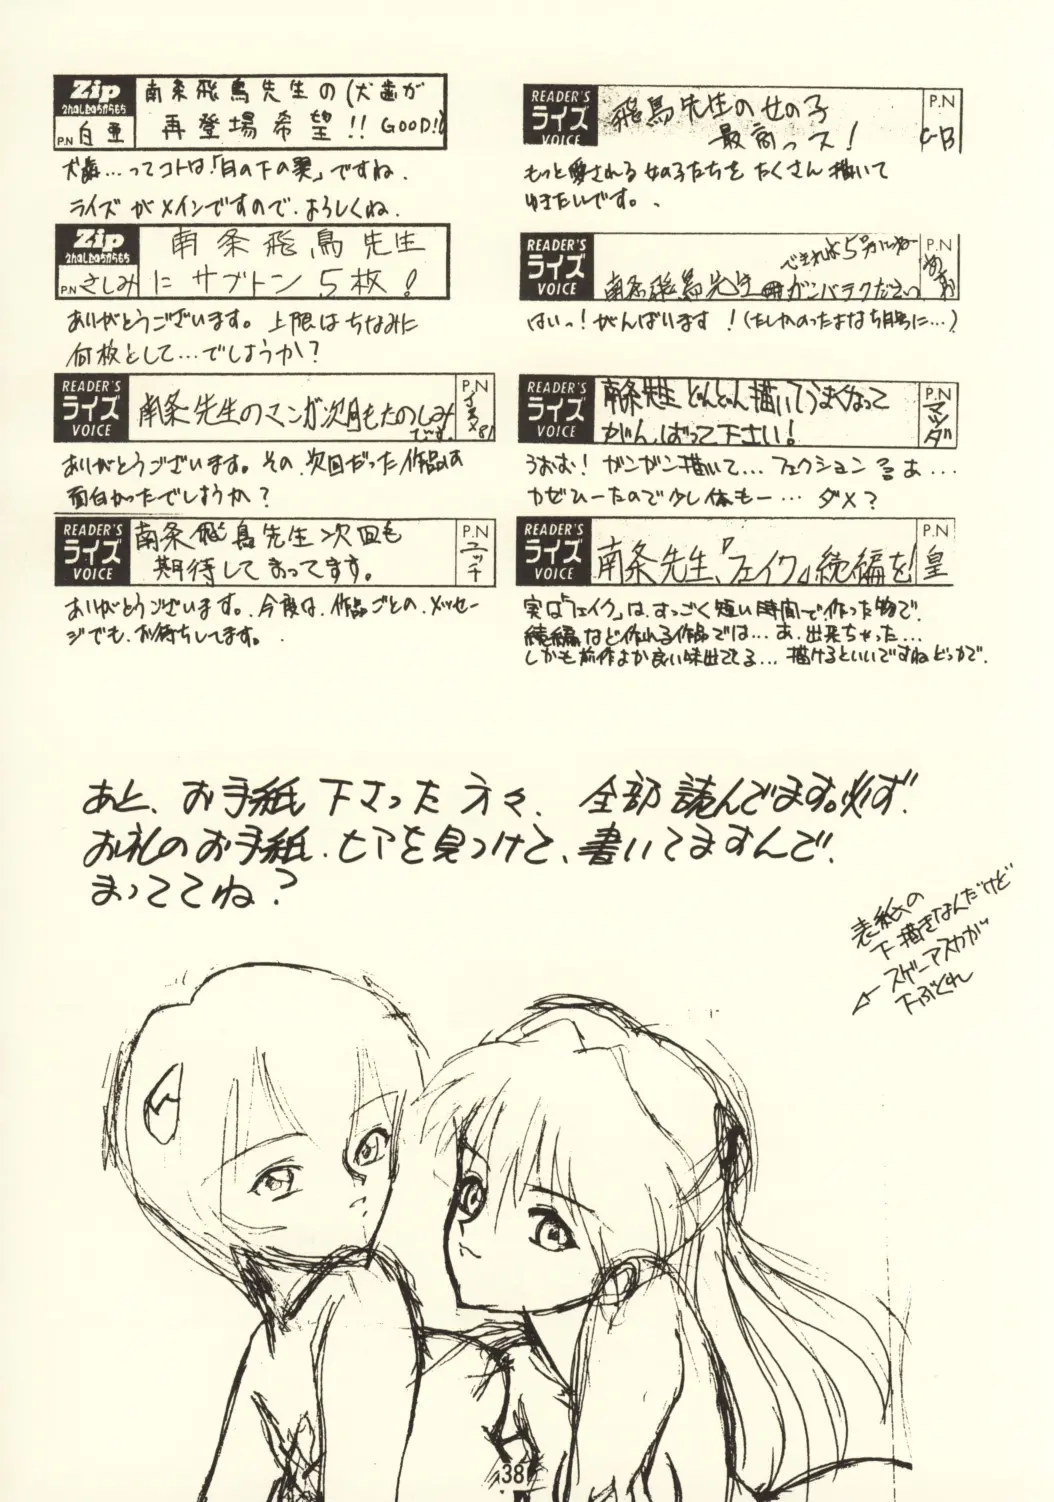 Zip
P.N 白亜
南条飛鳥先生の(犬歯が
再登場希望!! GOOD!!
犬歯…ってコトは「月の下の翼」ですね.
ライズがメインですので.よろしくね.
Zip
P.N さしみ
南条飛鳥先生
にザブトン5枚!
ありがとうございます。上限はちなみに
何枚として…でしょうか?
READER'S
ライズ
VOICE
南条先生のマンガ次回もたのしみ
です。
P.N
ありがとうございます。その.次回だった作品は
面白かったでしょうか?
READER'S
ライズ
VOICE
南条飛鳥先生次回も
期待してまってます。
P.N
ニッチ
ありがとうございます。今度は.作品ごとの.メッセー
ジでも.お待ちしてます。
READER'S
ライズ
VOICE
飛鳥先生の女の子
最高っス!
P.N
C-B
もっと愛される女の子たちをたくさん描いて
ゆきたいです。
READER'S
ライズ
VOICE
できれば5号がいいなー
南条飛鳥先生 ガンバッテください
P.N
はいっ!がんばいます!
READER'S
ライズ
VOICE
南条先生どんどん描いてうまくなって
がんばって下さい!
P.N
マツダ
うおお!ガンガン描いて…
カゼひーたので少し休もー…ダメ?
READER'S
ライズ
VOICE
南条先生、「フェイク」続編を!
P.N
皇
実は「フェイク」は.すっごく短い時間で.作った物で.
続編など作れる作品では…あ.出来ちゃった…
しかも前作より良い味出てる…描けるといいですねどっかで.
あと、お手紙下さった方々、全部読んでます。必ず.
お礼のお手紙.ヒマを見つけて、書いてますんで.
まっててね?
表紙の
下描きなんだけど
スゲーアスカが
下ぶくれ
38